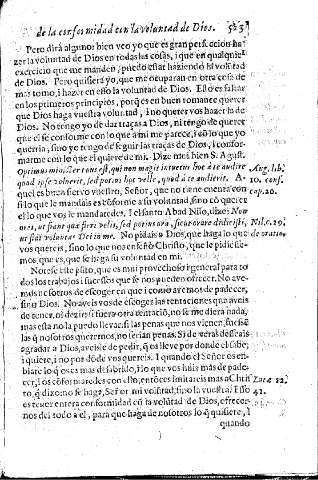 de la conformidad con la voluntad de Dios. 523
Pero dirà alguno: bien veo yo que es gran perfecion ha-
zer la volũtad de Dios en todas las cosas, i que en qualquier
exercicio que me manden, puedo estar haziendo la volũtad
de Dios. Pero quisiera yo, que me ocuparan en otra cosa de
mas tomo, i hazer en esso la voluntad de Dios. Esso es faltar
en los primeros principios, porq̃ es en buen romance querer
que Dios haga vuestra volũtad, i no querer vos hazer la de
Dios. No tengo yo de dar traças a Dios, ni tengo de querer
que el se conforme con lo que a mi me parece, i cõ lo que yo
querria; sino yo tengo de seguir las traças de Dios, i confor-
marme con lo que el quiere de mi. Dize mui bien S. Agust.
Optimus minister tuus est, qui non magis intuetur hoc à te audire
quod ipse voluerit, sed potius hoc velle, quod à te audierit. A-
quel es buen siervo vuestro, Señor, que no tiene cuenta con
si lo que le mandais es cõforme a su voluntad, sino cõ querer
el lo que vos le mandaredes. I el santo Abad Nilo, dize: Non
ores, ut fiant quæ fieri velis, sed potius ora, sicut orare didicisti,
ut fiat voluntas Dei in me. No pidais a Dios, que haga lo que
vos quereis, sino lo que nos enseñò Christo, que le pidiesse-
mos, que es, que se haga su voluntad en mi.
Notese este pũto, que es mui provechoso i general para to
dos los trabajos i sucessos que se nos pueden ofrecer. No ave-
mos nosotros de escoger en que i como avemos de padecer,
sino Dios. No aveis vos de escoger las tentaciones que aveis
de tener, ni dezir: si fuera otra tentaciõ, no se me diera nada;
mas esta no la puedo llevar: si las penas que nos vienen, fuessẽ
las q̃ nosotros queremos, no serian penas. Si de veras desseais
agradar a Dios, aveisle de pedir, q̃ os lleve por donde el sabe,
i quiere, i no por dõde vos quereis. I quando el Señor os em-
biare lo q̃ os es mas dessabrido, i lo que vos huis mas de pade-
cer, i os cõformaredes con ello, entõces imitareis mas a Chris
to, q̃ dixo: no se haga, Señor mi volũtad, sino la vuestra. Esso
es tener entera conformidad cõ la volũtad de Dios, ofrecer-
nos del todo a el, para que haga de nosotros lo q̃ quisiere, i
quando
Aug. lib.
10. conf.
cap. 26.
Nil. c. 29.
de oratio.
Lucæ 22.
42.